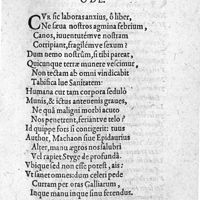 ODE.
CVr sic laboras anxius, ô liber,
Ne sæua nostros agmina febrium,
Canos, iuuentutémve nostram
Corripiant, fragilémve sexum?
Dum nemo nostrûm, si tibi pareat,
Quicunque terræ munere vescimur,
Non tectam ab omni vindicabit
Tabifica lue Sanitatem:
Humana cur tam corpora sedulò
Munis, & ictus anteuenis graues,
Ne quà maligni morbi acuto
Nos penetrent, feriántve telo?
Id quippe fors si contigerit: tuus
Author, Machaon siue Epidaurius
Alter, manu ægros nos salubri
Vel rapiet Styge de profundâ.
Vbique sed non esse potest, ait:
Vt sanet omnes: dum celeri pede
Curram per oras Galliarum,
Inque manu inque sinu ferendus.